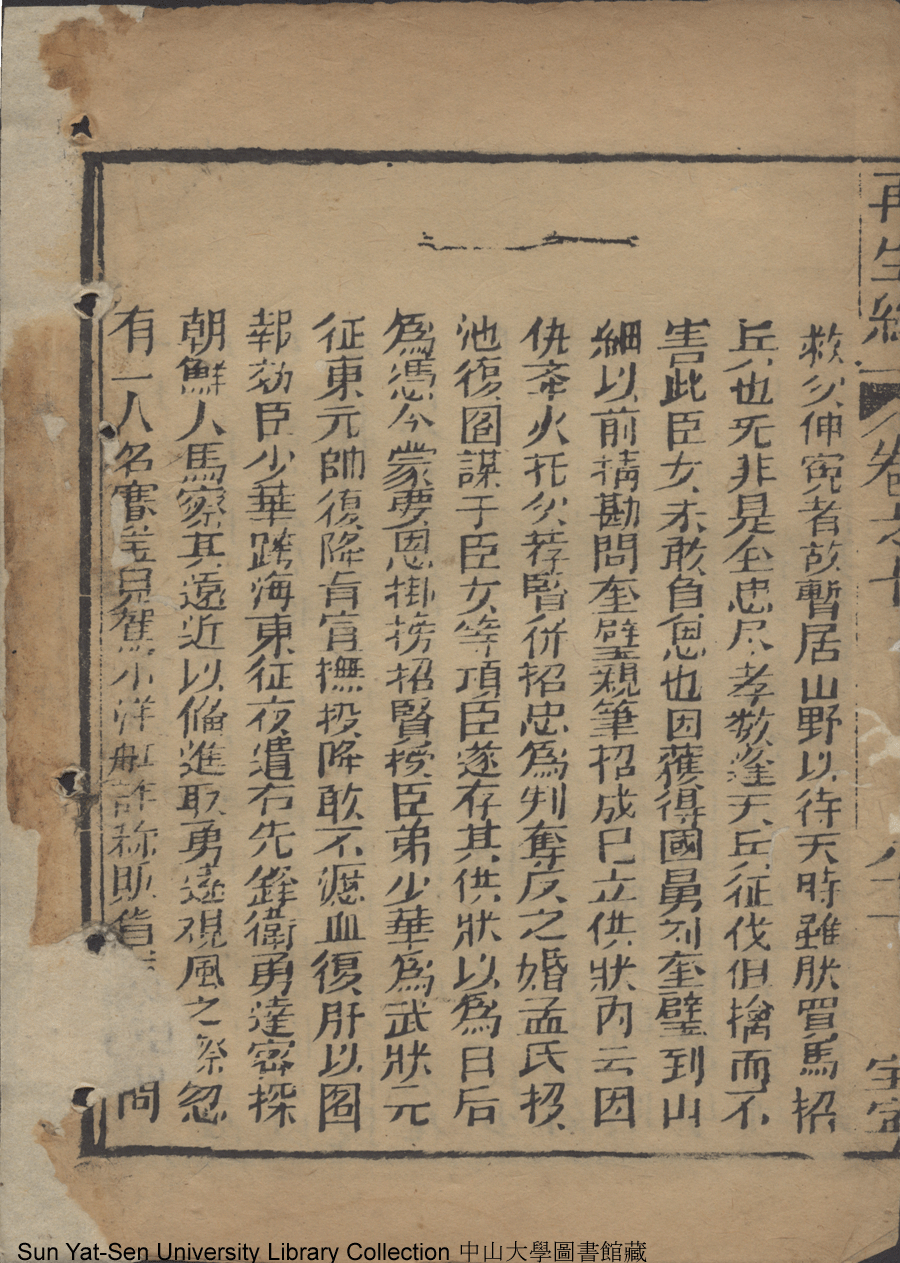 再生緣
卷之十
救父伸冤者故暫居山野以待天時雖肰買馬招
兵也死非是全忠尽孝数逢天兵征伐但擒而不
害此臣女未敢負恩也因獲得國舅刘奎璧到山
細以前情勘問奎璧親筆招成已立供狀内云因
仇牵火托父荐賢併招忠為刋奪反之婚孟氏投
池復啚謀于臣女等項臣遂存其供狀以為日后
為憑今蒙要恩掛榜招賢授臣弟少華為武狀元
征東元帥復降肓官撫投降敢不瀝血復肝以啚
報効臣少華跨海東征夜遣右先鋒衛勇達密探
朝鮮人馬察其遠近以偹進取勇達覌風之際忽
有一人名賽宝見駕小洋船詐称販貨問
Sun Yat-Sen University Library Collection 中山大學圖書館藏